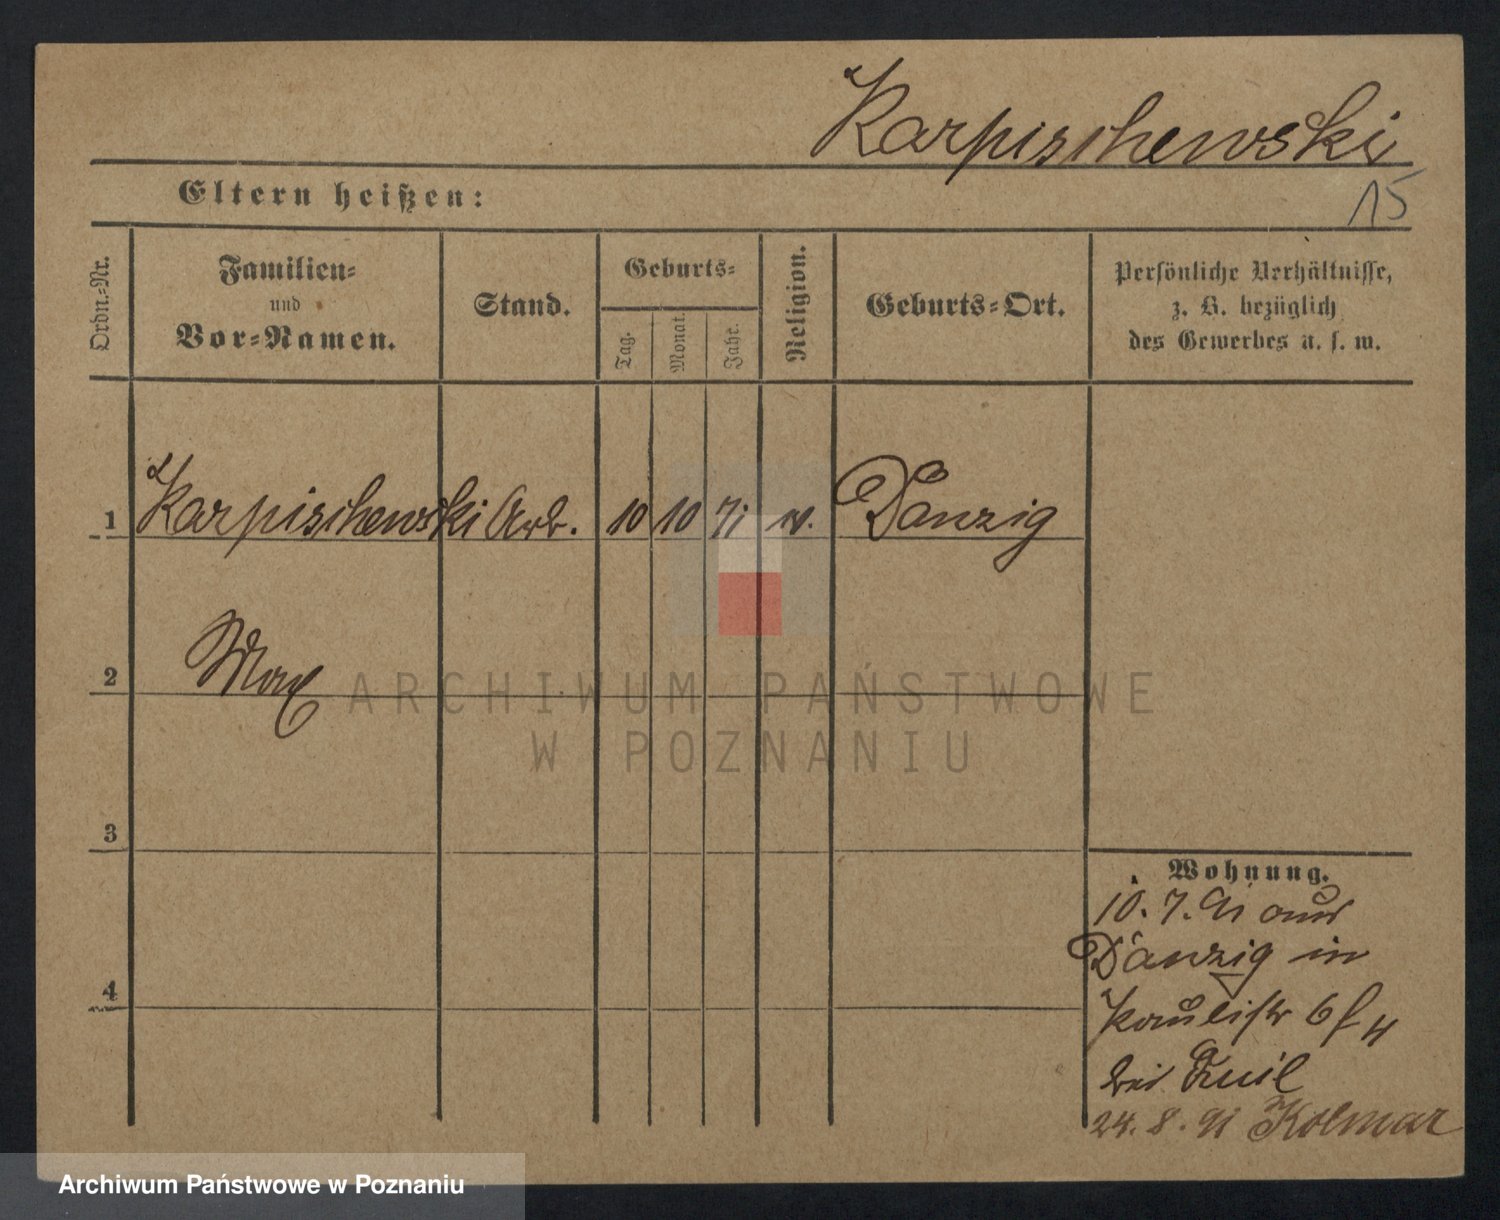 Karpischewski
15
Eltern heißen:
Ordn.-Nr.
Familien-
und
Vor-Namen.
Stand.
Geburts-
Tag.
Monat.
Jahr.
Religion.
Geburts-Ort.
Persönliche Verhältnisse,
z. B. bezüglich
des Gewerbes u. s. w.
1 Karpischewski Arb. 10 10 71 Danzig
2 Max
3
4
Wohnung.
10. 7. 91 aus
Danzig in
Paulistr 6
bei
24. 8. 91 Kolmar
ARCHIWUM PAŃSTWOWE
W POZNANIU
Archiwum Państwowe w Poznaniu